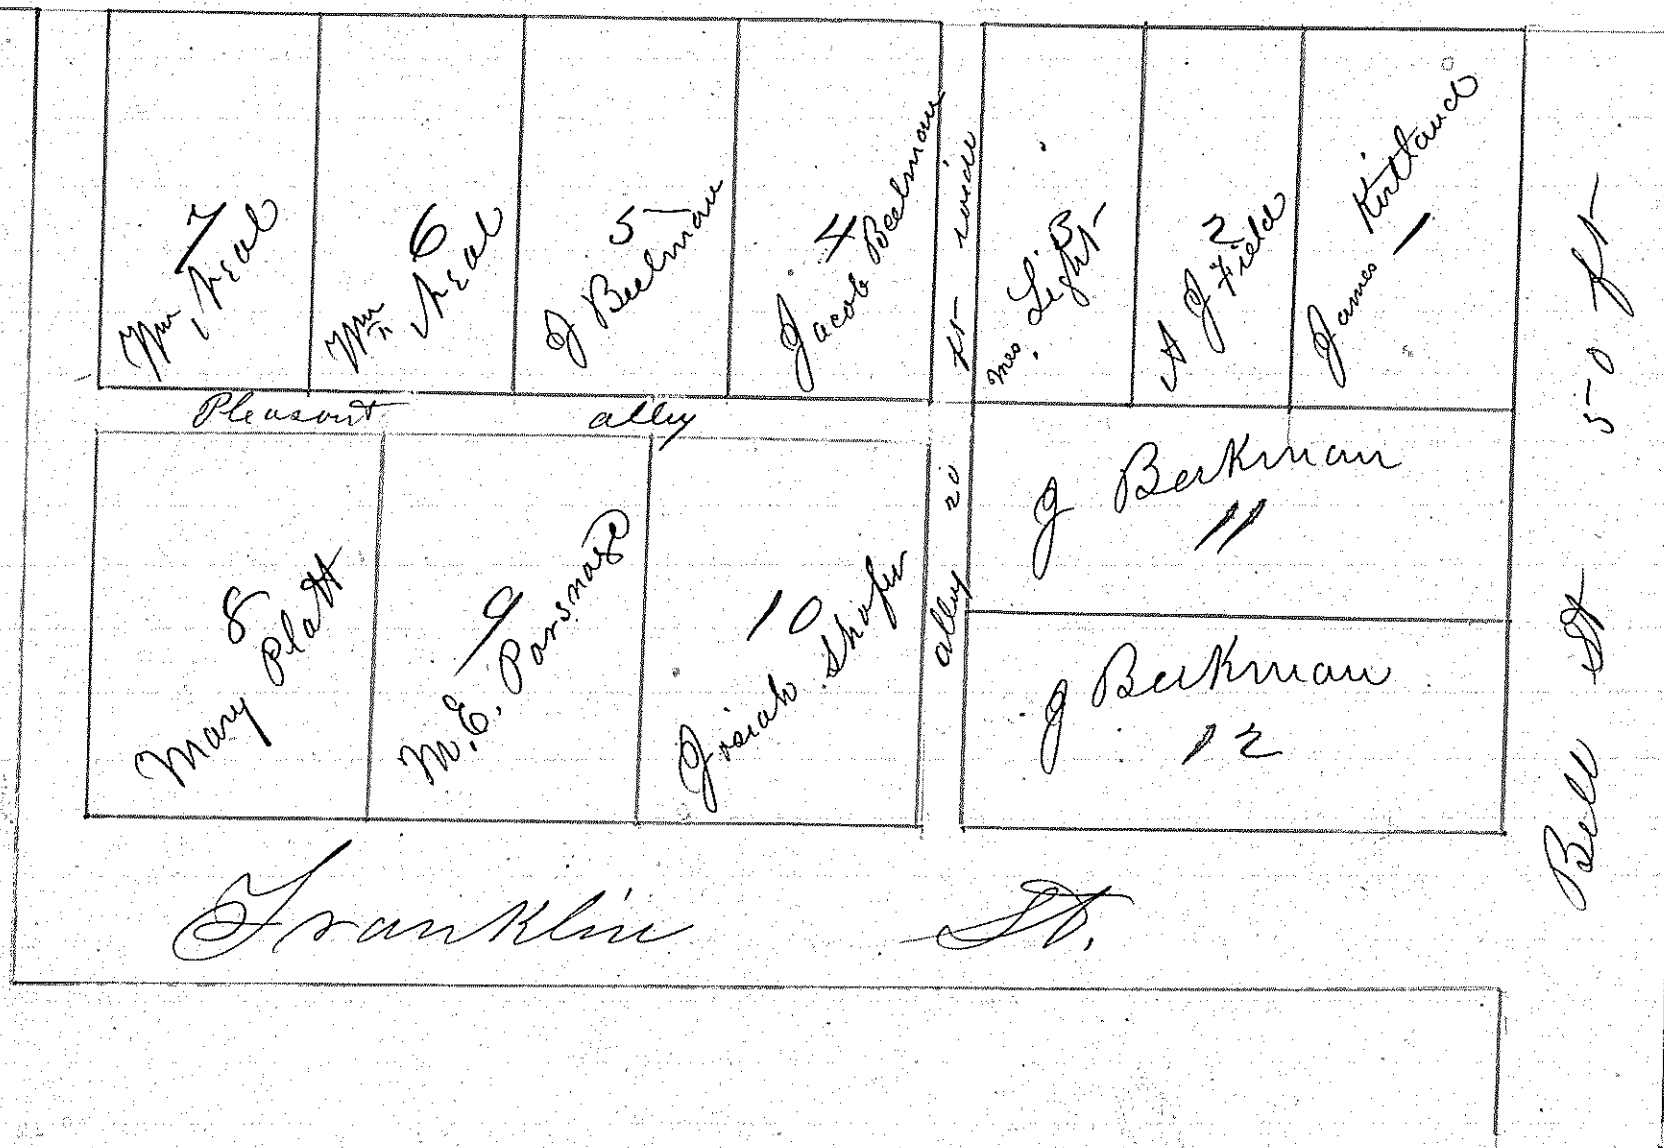 7
Wm Neal
6
Wm Neal
5
J Beelman
4
Jacob Beelman
alley 20 ft wide
3
Mrs. Light
2
A J Field
James Kirtland
1
Pleasant alley
8
Mary Platt
9
M.E. Parsnage
10
Josiah Shafer
J Berkman
11
J Berkman
12
Bell St 50 ft
Franklin St.